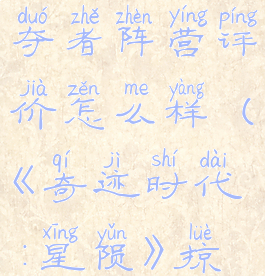 duó zhě zhèn yíng píng
夺者阵营评
jià zěn me yàng
价怎么样（
qí jì shí dài
《奇迹时代
xīng yǔn lüè
：星陨》掠